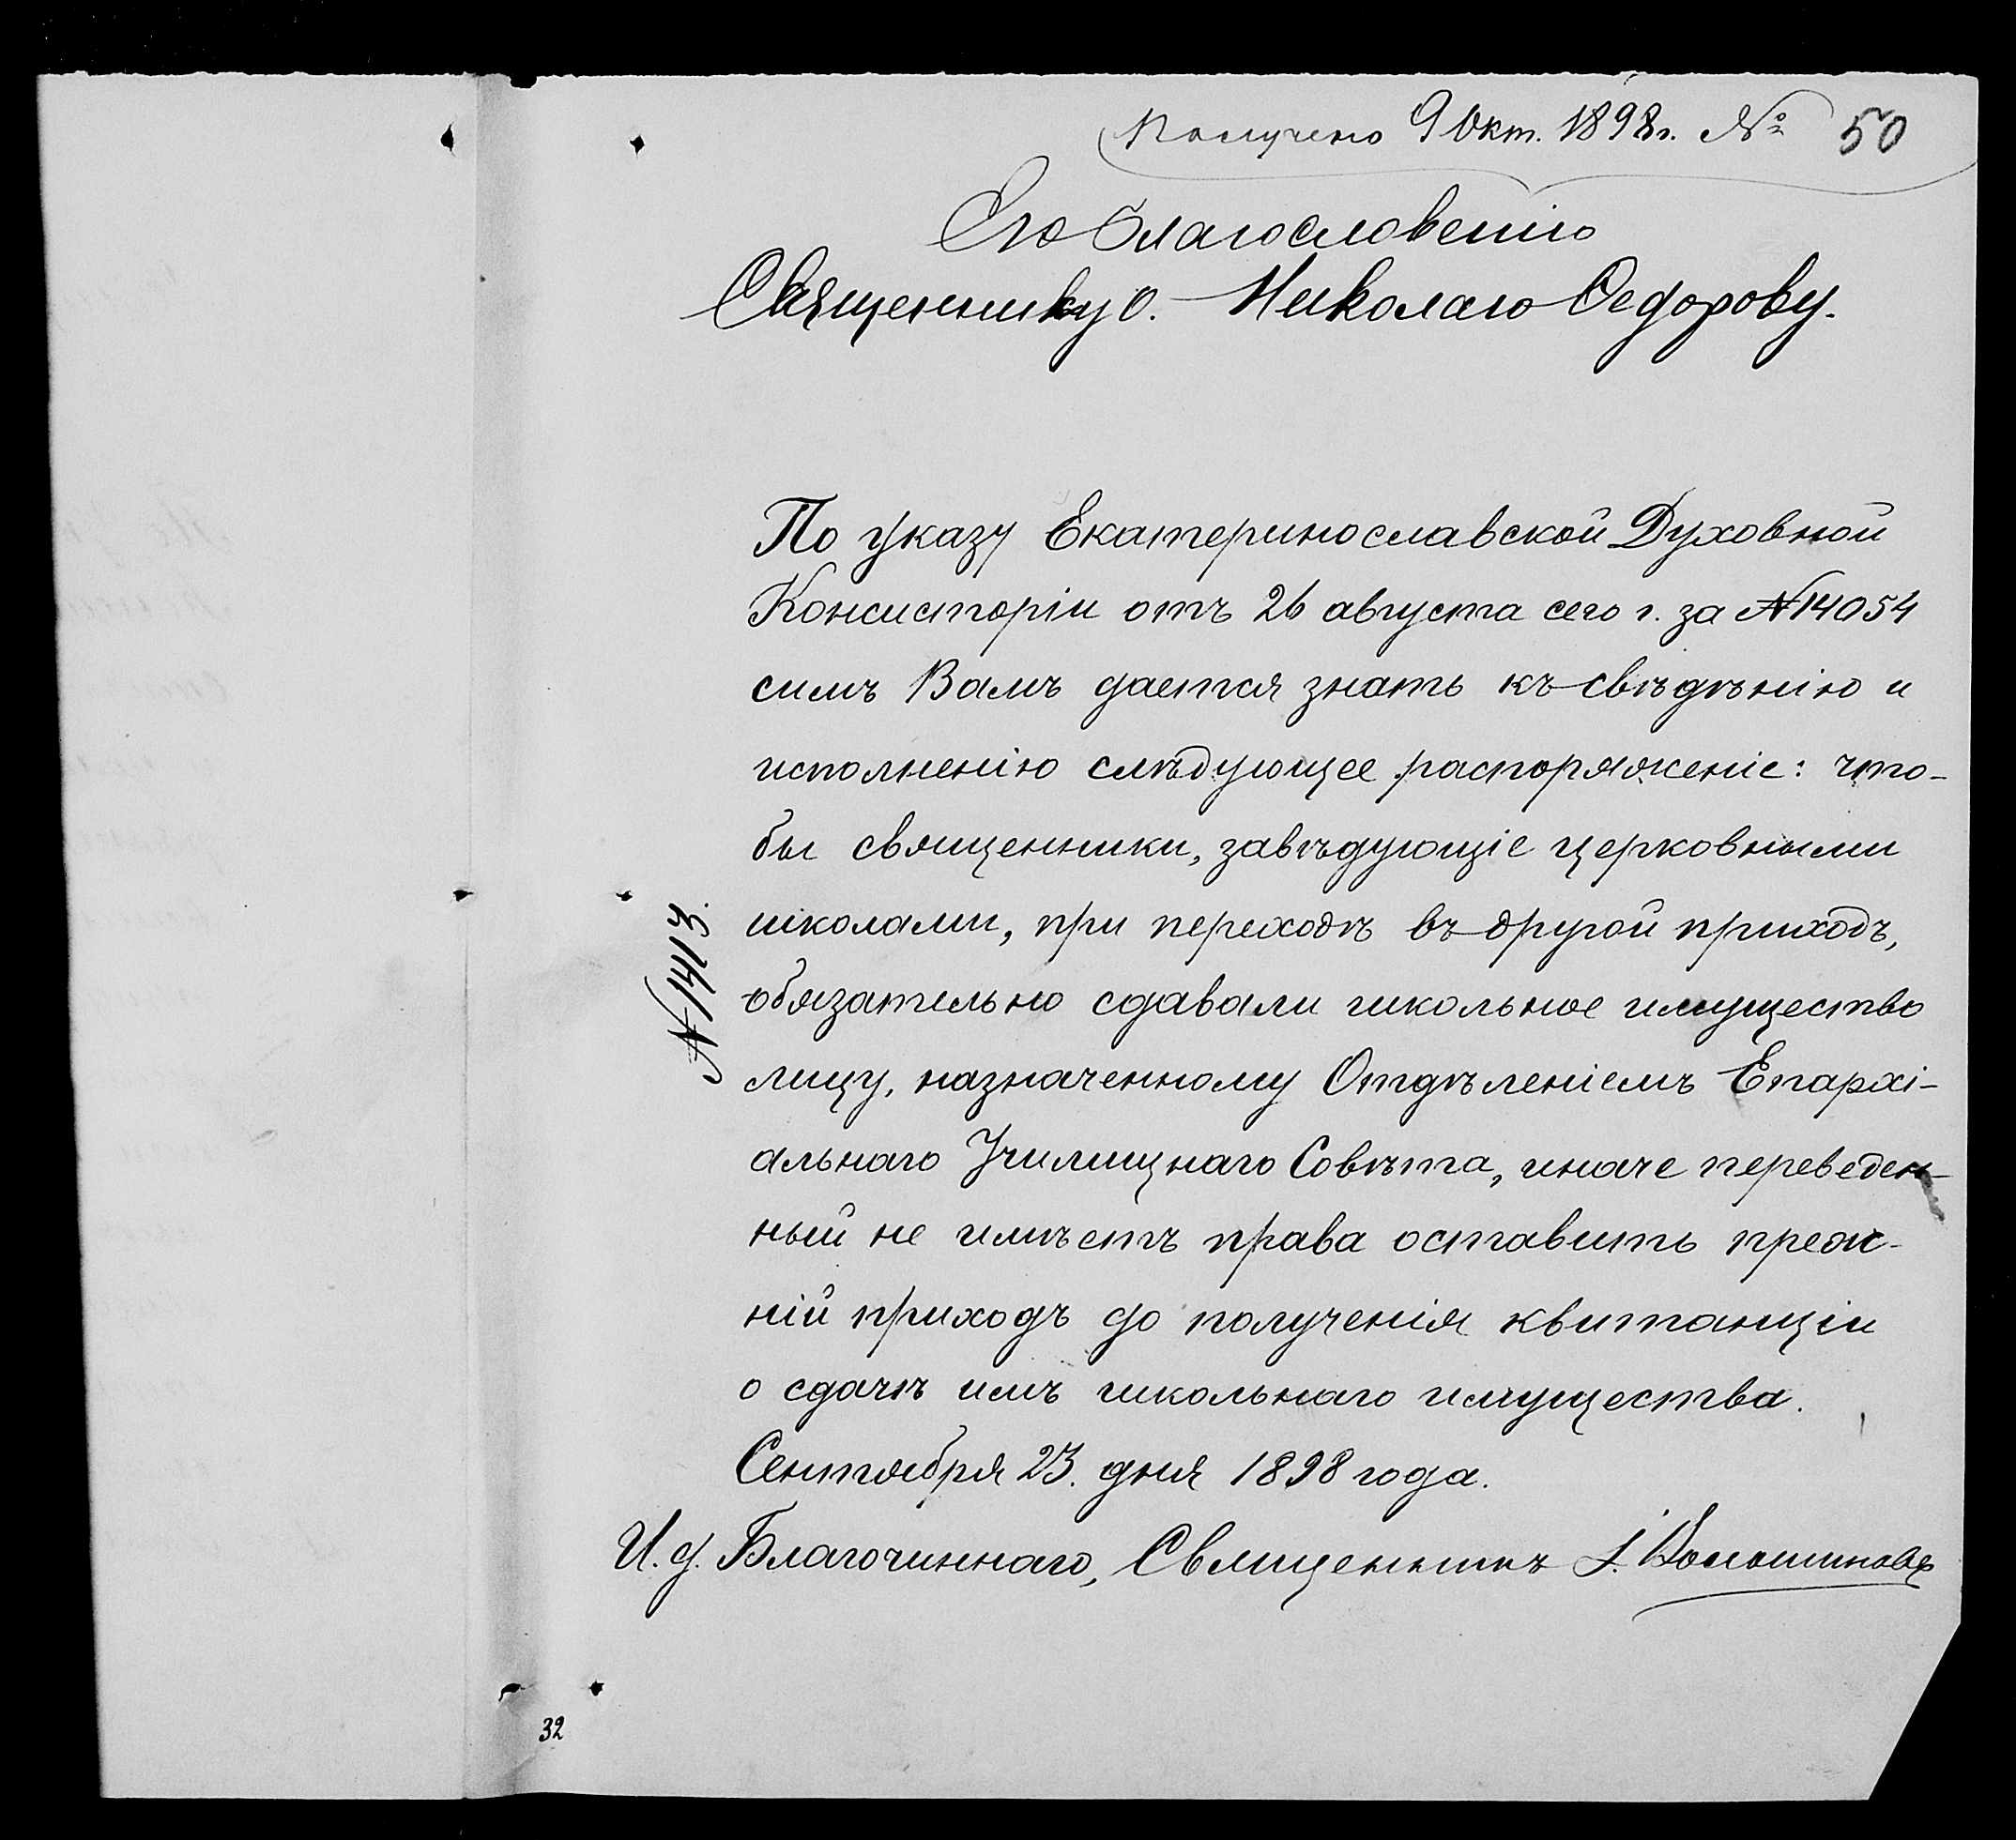 Получено 9 Окт. 1898 г. № 50
Его Благословенію
Священнику о. Николаю Ѳедорову.
По указу Екатеринославской Духовной
Консисторіи отъ 26 августа сего г. за №14054
симъ Вамъ дается знать къ свѣдѣнію и
исполненію слѣдующее распоряженіе: что-
бы священники, завѣдующіе церковными
школами, при переходѣ въ другой приходъ,
обязательно сдавали школьное имущество
лицу, назначенному Отдѣленіемъ Епархі-
альнаго Училищнаго Совѣта, иначе переведен-
ный не имѣетъ права оставить преж-
ній приходъ до полученія квитанціи
о сдачѣ имъ школьнаго имущества.
Сентября 23. дня 1898 года.
И. д. Благочиннаго, Священникъ
№ 1413.
32